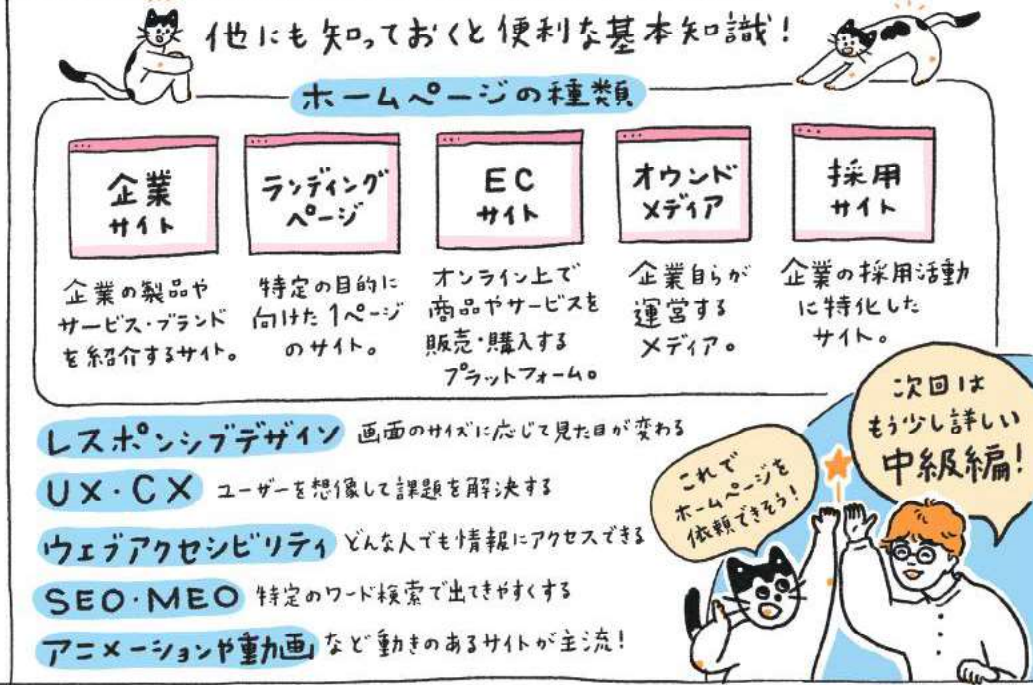 他にも知っておくと便利な基本知識!
ホームページの種類
企業
サイト
企業の製品や
サービス・ブランド
を紹介するサイト。
ランディング
ページ
特定の目的に
向けた1ページ
のサイト。
EC
サイト
オンライン上で
商品やサービスを
販売・購入する
プラットフォーム。
オウンド
メディア
企業自らが
運営する
メディア。
採用
サイト
企業の採用活動
に特化した
サイト。
レスポンシブデザイン 画面のサイズに応じて見た目が変わる
UX・CX ユーザーを想像して課題を解決する
ウェブアクセシビリティ どんな人でも情報にアクセスできる
SEO・MEO 特定のワード検索で出てきやすくする
アニメーションや動画 など動きのあるサイトが主流!
これで
ホームページを
依頼できそう!
次回は
もう少し詳しい
中級編!